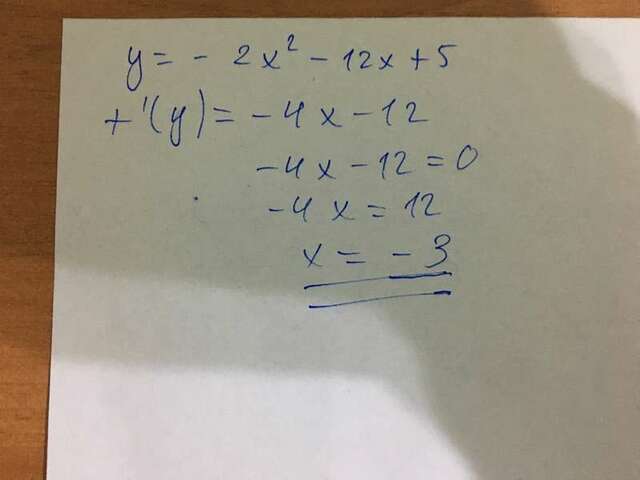 y = - 2x² - 12x + 5
f'(y) = - 4x - 12
- 4x - 12 = 0
- 4x = 12
x = - 3